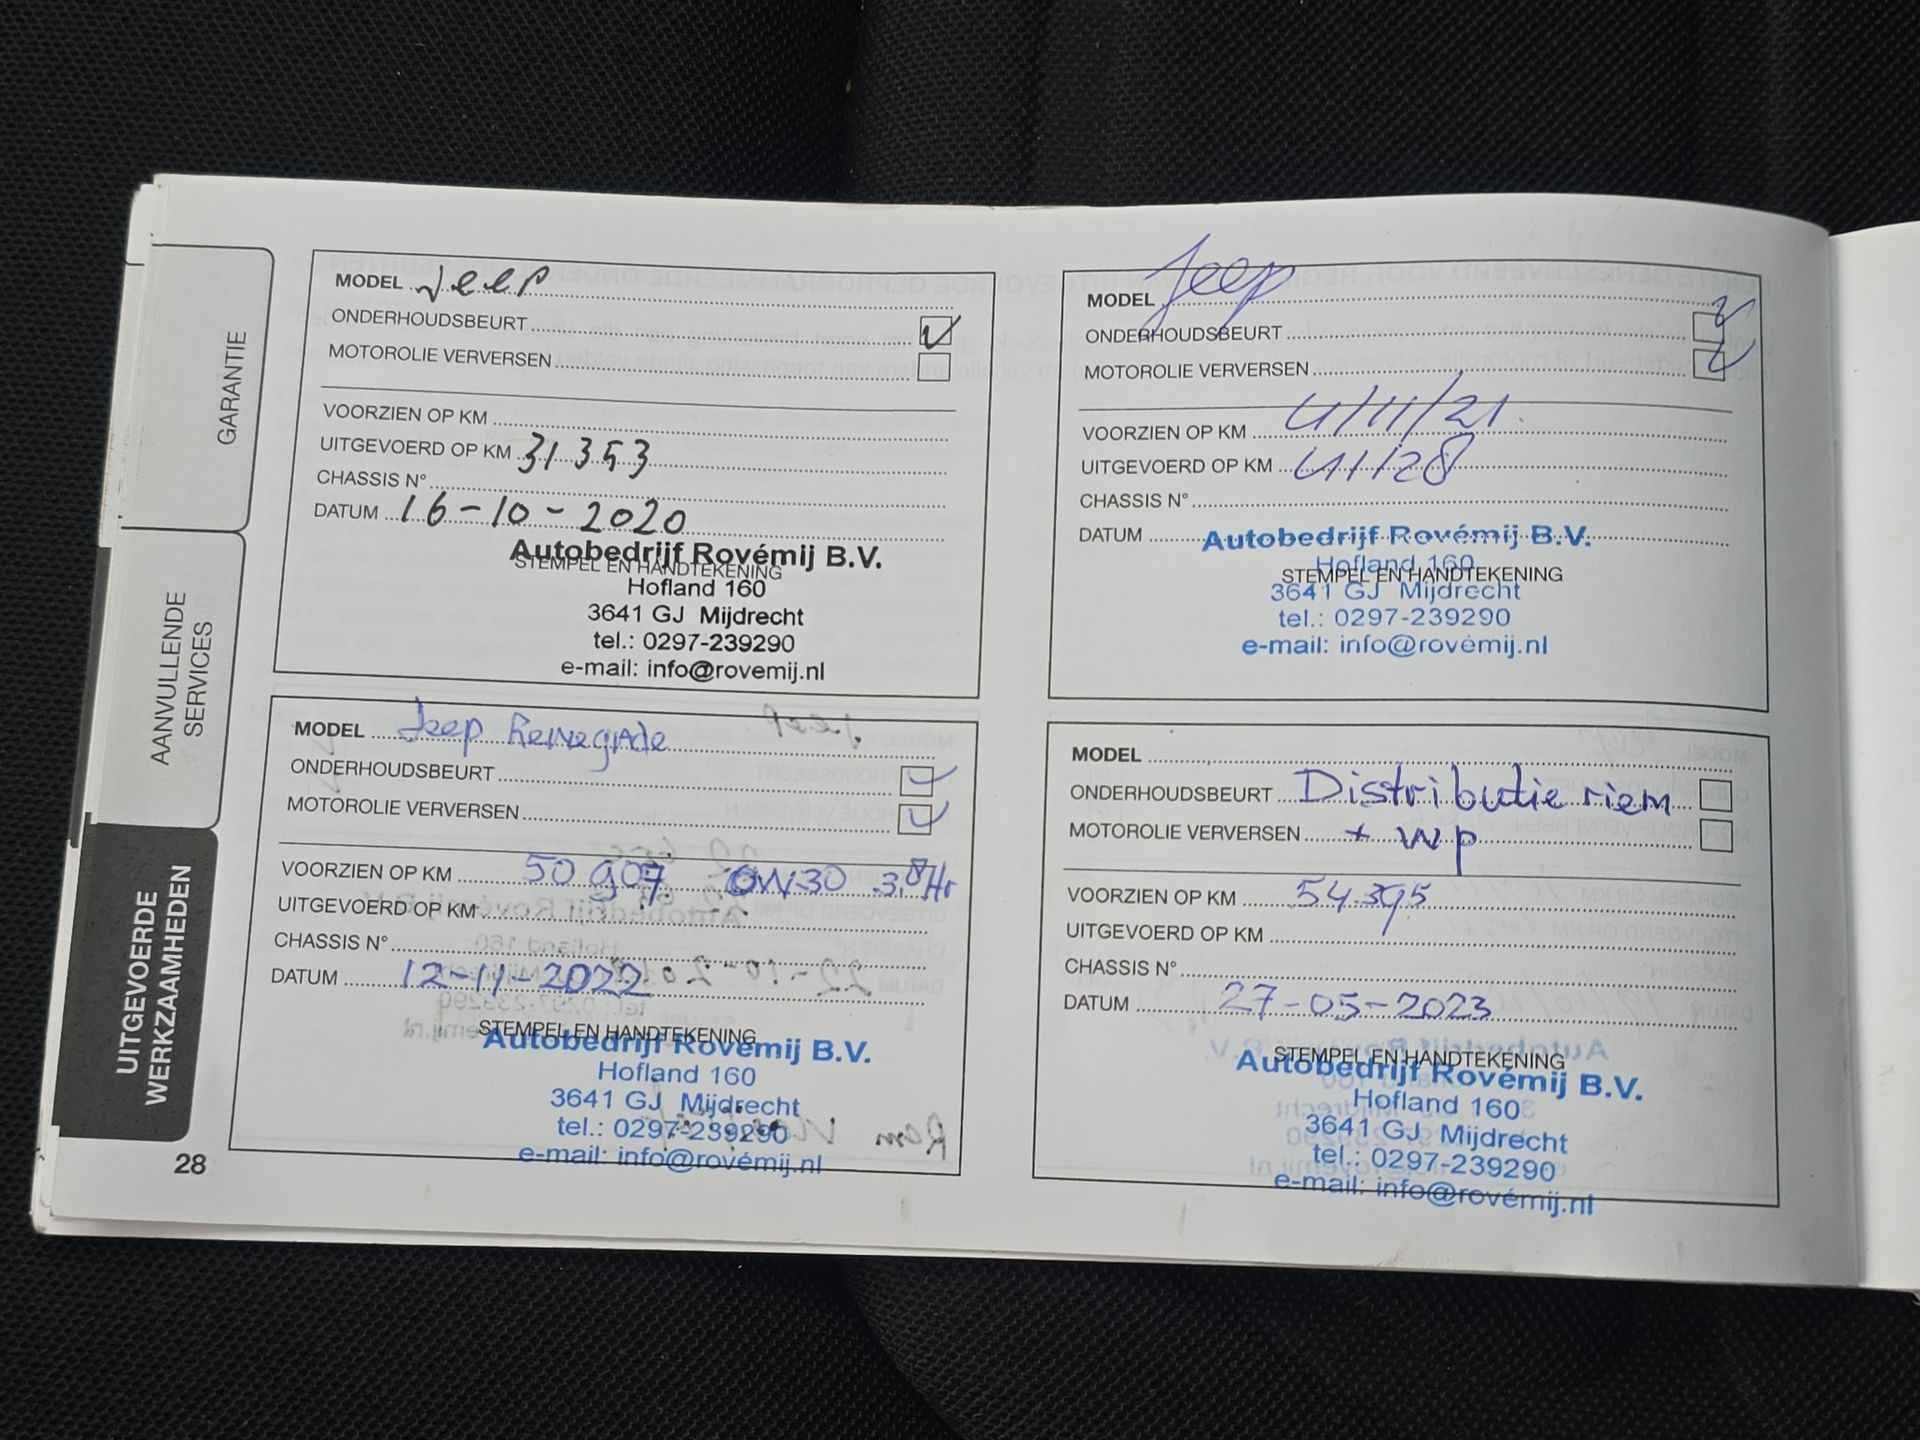 GARANTIE
AANVULLENDE
SERVICES
UITGEVOERDE
WERKZAAMHEDEN
28
MODEL Jeep
ONDERHOUDSBEURT
MOTOROLIE VERVERSEN
VOORZIEN OP KM
UITGEVOERD OP KM 31353
CHASSIS N°
DATUM 16-10-2020
Autobedrijf Rovémij B.V.
STEMPEL EN HANDTEKENING
Hofland 160
3641 GJ Mijdrecht
tel.: 0297-239290
e-mail: info@rovemij.nl
MODEL Jeep
ONDERHOUDSBEURT
MOTOROLIE VERVERSEN
VOORZIEN OP KM 4/11/21
UITGEVOERD OP KM 41128
CHASSIS N°
DATUM
Autobedrijf Rovémij B.V.
Hofland 160
STEMPEL EN HANDTEKENING
3641 GJ Mijdrecht
tel.: 0297-239290
e-mail: info@rovémij.nl
MODEL Jeep Renegade
ONDERHOUDSBEURT
MOTOROLIE VERVERSEN
VOORZIEN OP KM 50 907 0W30
UITGEVOERD OP KM
CHASSIS N°
DATUM 12-11-2022
STEMPEL EN HANDTEKENING
Autobedrijf Rovémij B.V.
Hofland 160
3641 GJ Mijdrecht
tel.: 0297-239290
e-mail: info@rovémij.nl
MODEL
ONDERHOUDSBEURT Distributie riem
MOTOROLIE VERVERSEN + wp
VOORZIEN OP KM 54.395
UITGEVOERD OP KM
CHASSIS N°
DATUM 27-05-2023
STEMPEL EN HANDTEKENING
Autobedrijf Rovémij B.V.
Hofland 160
3641 GJ Mijdrecht
tel.: 0297-239290
e-mail: info@rovémij.nl